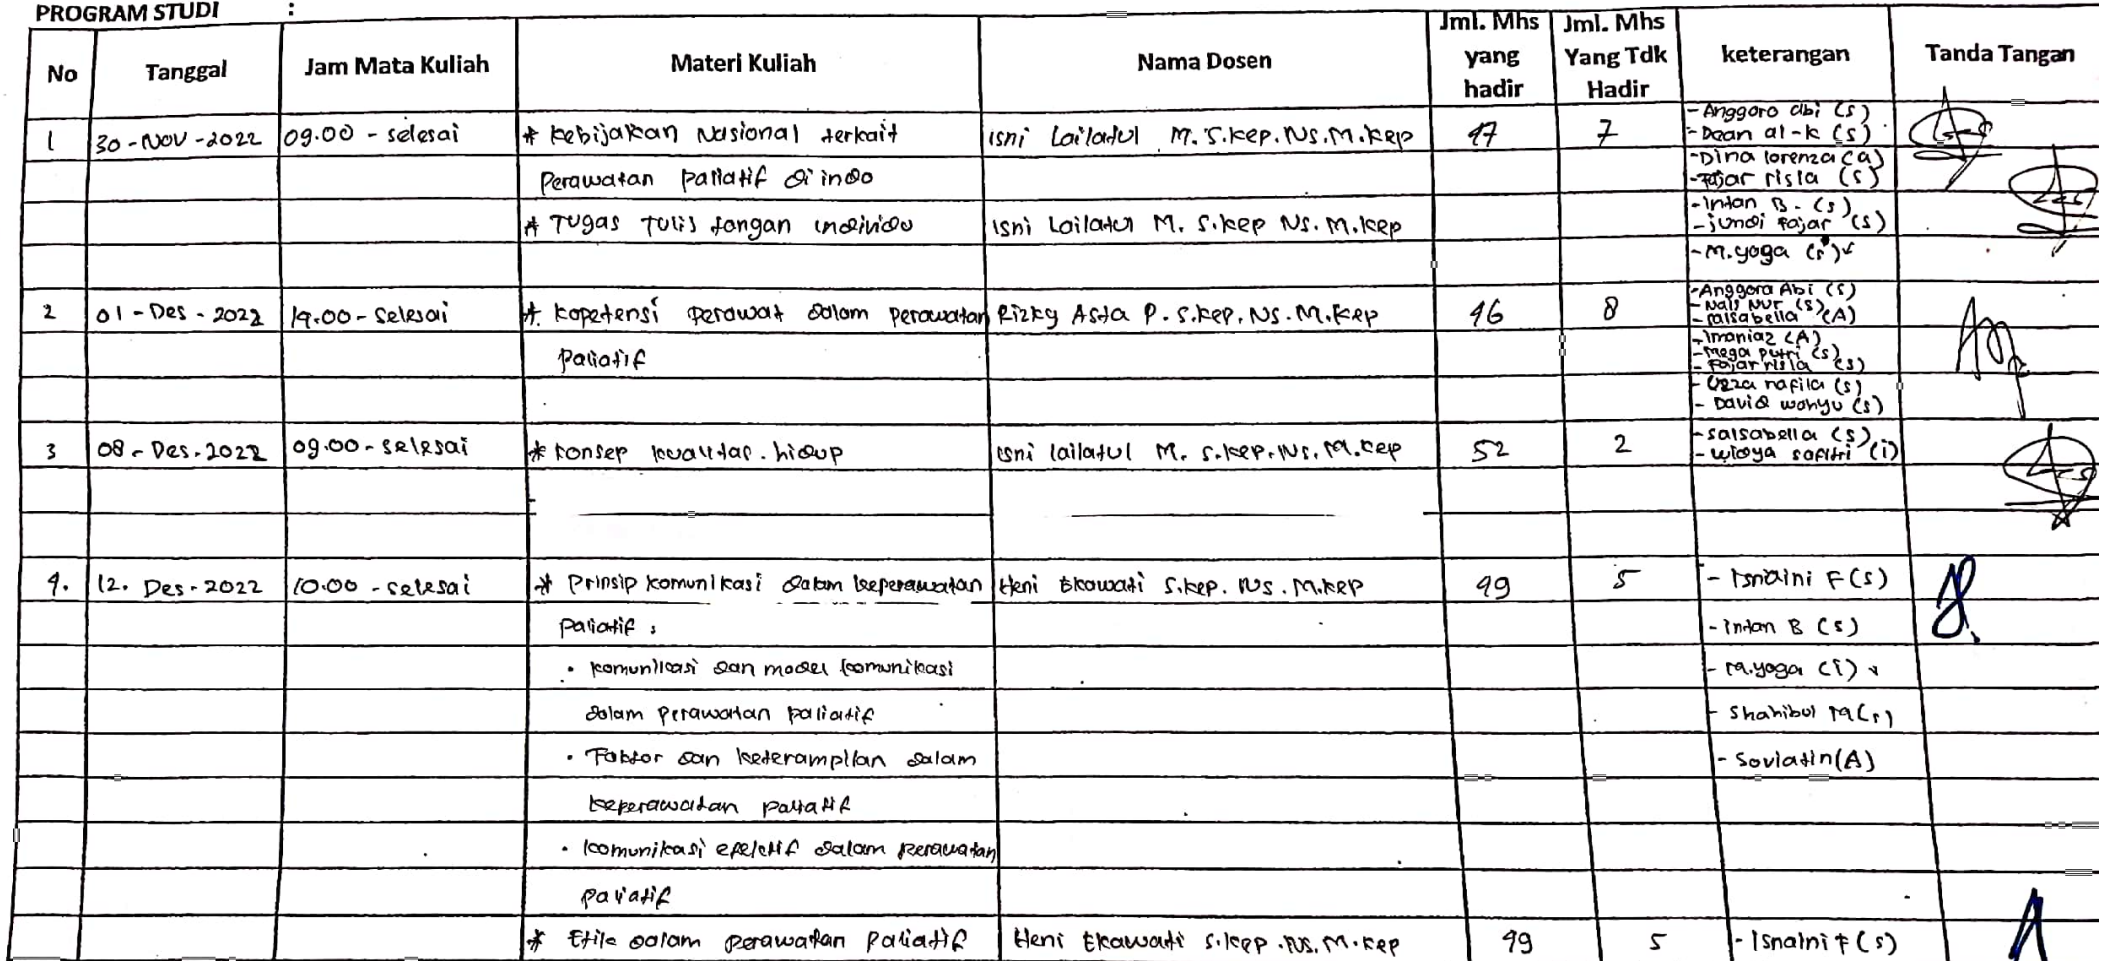 PROGRAM STUDI :
No Tanggal Jam Mata Kuliah Materi Kuliah Nama Dosen Jml. Mhs yang hadir Jml. Mhs Yang Tdk Hadir keterangan Tanda Tangan
1 30-Nov-2022 09.00 - selesai * Kebijakan Nasional terkait Isni Lailatul M. S.Kep.Ns.M.Kep 47 7 - Anggoro abi (s)
- Dean al-k (s)
Perawatan Paliatif di indo - Dina lorenza (a)
- Fajar risla (s)
* Tugas Tulis tangan individu Isni Lailatul M. S.Kep Ns. M.Kep - Intan B. (s)
- jundi Fajar (s)
- M.yoga (s)
2 01 - Des - 2022 14.00 - Selesai * Kopetensi perawat dalam perawatan Rizky Asta P. S.Kep. Ns. M.Kep 46 8 - Anggora Abi (s)
- Nais Nur (s)
- salsabella (A)
Paliatif - Imaniaz (A)
- Mega putri (s)
- Fajar risla (s)
- nafila (s)
- David wahyu (s)
3 08 - Des - 2022 09.00 - selesai * Konsep kualitas hidup Isni lailatul M. S.Kep. Ns. M.Kep 52 2 - salsabella (s)
- widya safitri (i)
4. 12. Des - 2022 10.00 - selesai * Prinsip komunikasi dalam keperawatan Heni Ekawati S.Kep. Ns. M.Kep 49 5 - Isnaini F (s)
Paliatif : - Intan B (s)
• Komunikasi dan model komunikasi - M.yoga (i)
dalam perawatan paliatif - Shahibul M (s)
• Faktor dan keterampilan dalam - Soviatin (A)
keperawatan paliatif
• komunikasi efektif dalam perawatan
paliatif
* Etik dalam perawatan Paliatif Heni Ekawati S.Kep. Ns. M.Kep 49 5 - Isnaini F (s)